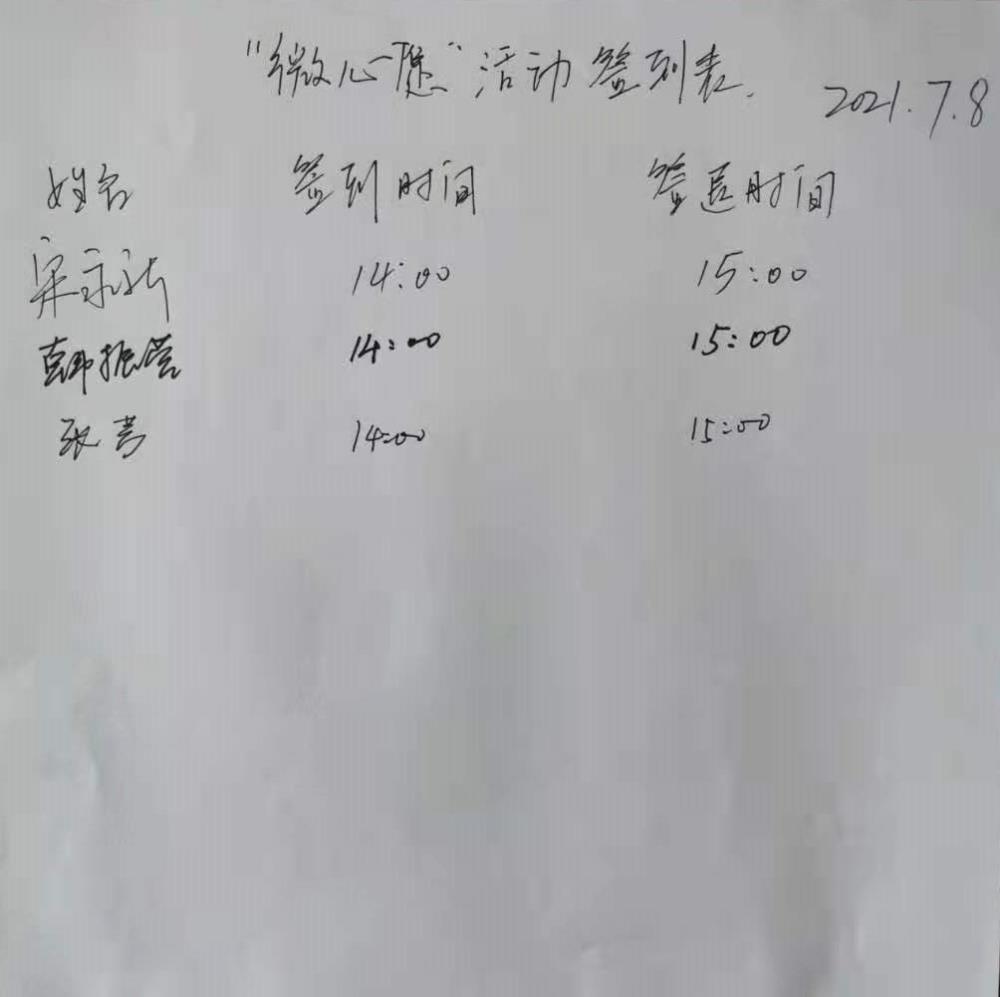 "微心愿"活动签到表.
2021.7.8
姓名 签到时间 签退时间
宋永新 14:00 15:00
韩振营 14:00 15:00
张芳 14:00 15:00